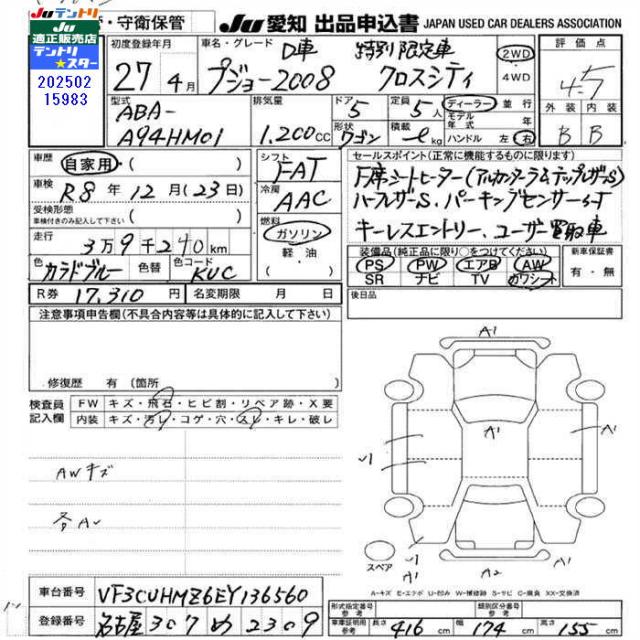 JUテントリ
JU適正販売店
テントリ★スター
202502
15983
・守衛保管
JU 愛知 出品申込書 JAPAN USED CAR DEALERS ASSOCIATION
初度登録年月
27年4月
車名・グレード D車 特別限定車
プジョー2008 クロスシティ
2WD
4WD
評価点
4.5
型式
ABA-
A94HM01
排気量
1.200cc
ドア 5
形状 ワゴン
定員 5人
積載 kg
ディーラー 並行
モデル年式 年
ハンドル 左 右
外装 内装
B B
車歴 自家用 ( )
シフト
FAT
車検 R8年12月(23日)
冷房
AAC
受検形態
車検付きのみ記入して下さい ( )
燃料
ガソリン
軽油
( )
走行 3万9千240km
色 カラドブルー 色替 色コード KUC
セールスポイント(正常に機能するものに限ります)
ハーフレザーS、パーキングセンサー
キーレスエントリー、ユーザー買取車
装備品(純正品に限り○をつけてください)
PS PW エアB AW
SR ナビ TV カワシート
新車保証書
有・無
R券 17,310円 名変期限 月 日
後日品
注意事項申告欄(不具合内容等は具体的に記入して下さい)
修復歴 有 (箇所 )
検査員記入欄
FW キズ・飛石・ヒビ割・リペア跡・X要
内装 キズ・汚レ・コゲ・穴・スレ・キレ・破レ
AWキズ
各AU
A1
A1
A1
A1
A2
スペア
A-キズ E-エクボ U-凹み W-補修跡 S-サビ C-腐食 XX-交換済
車台番号 VF3CUHMZ6EY136560
登録番号 名古屋 307 め 2309
形式指定番号 参考
類別区分番号 参考
車体寸法 長さ 416cm 幅 174cm 高さ 155cm